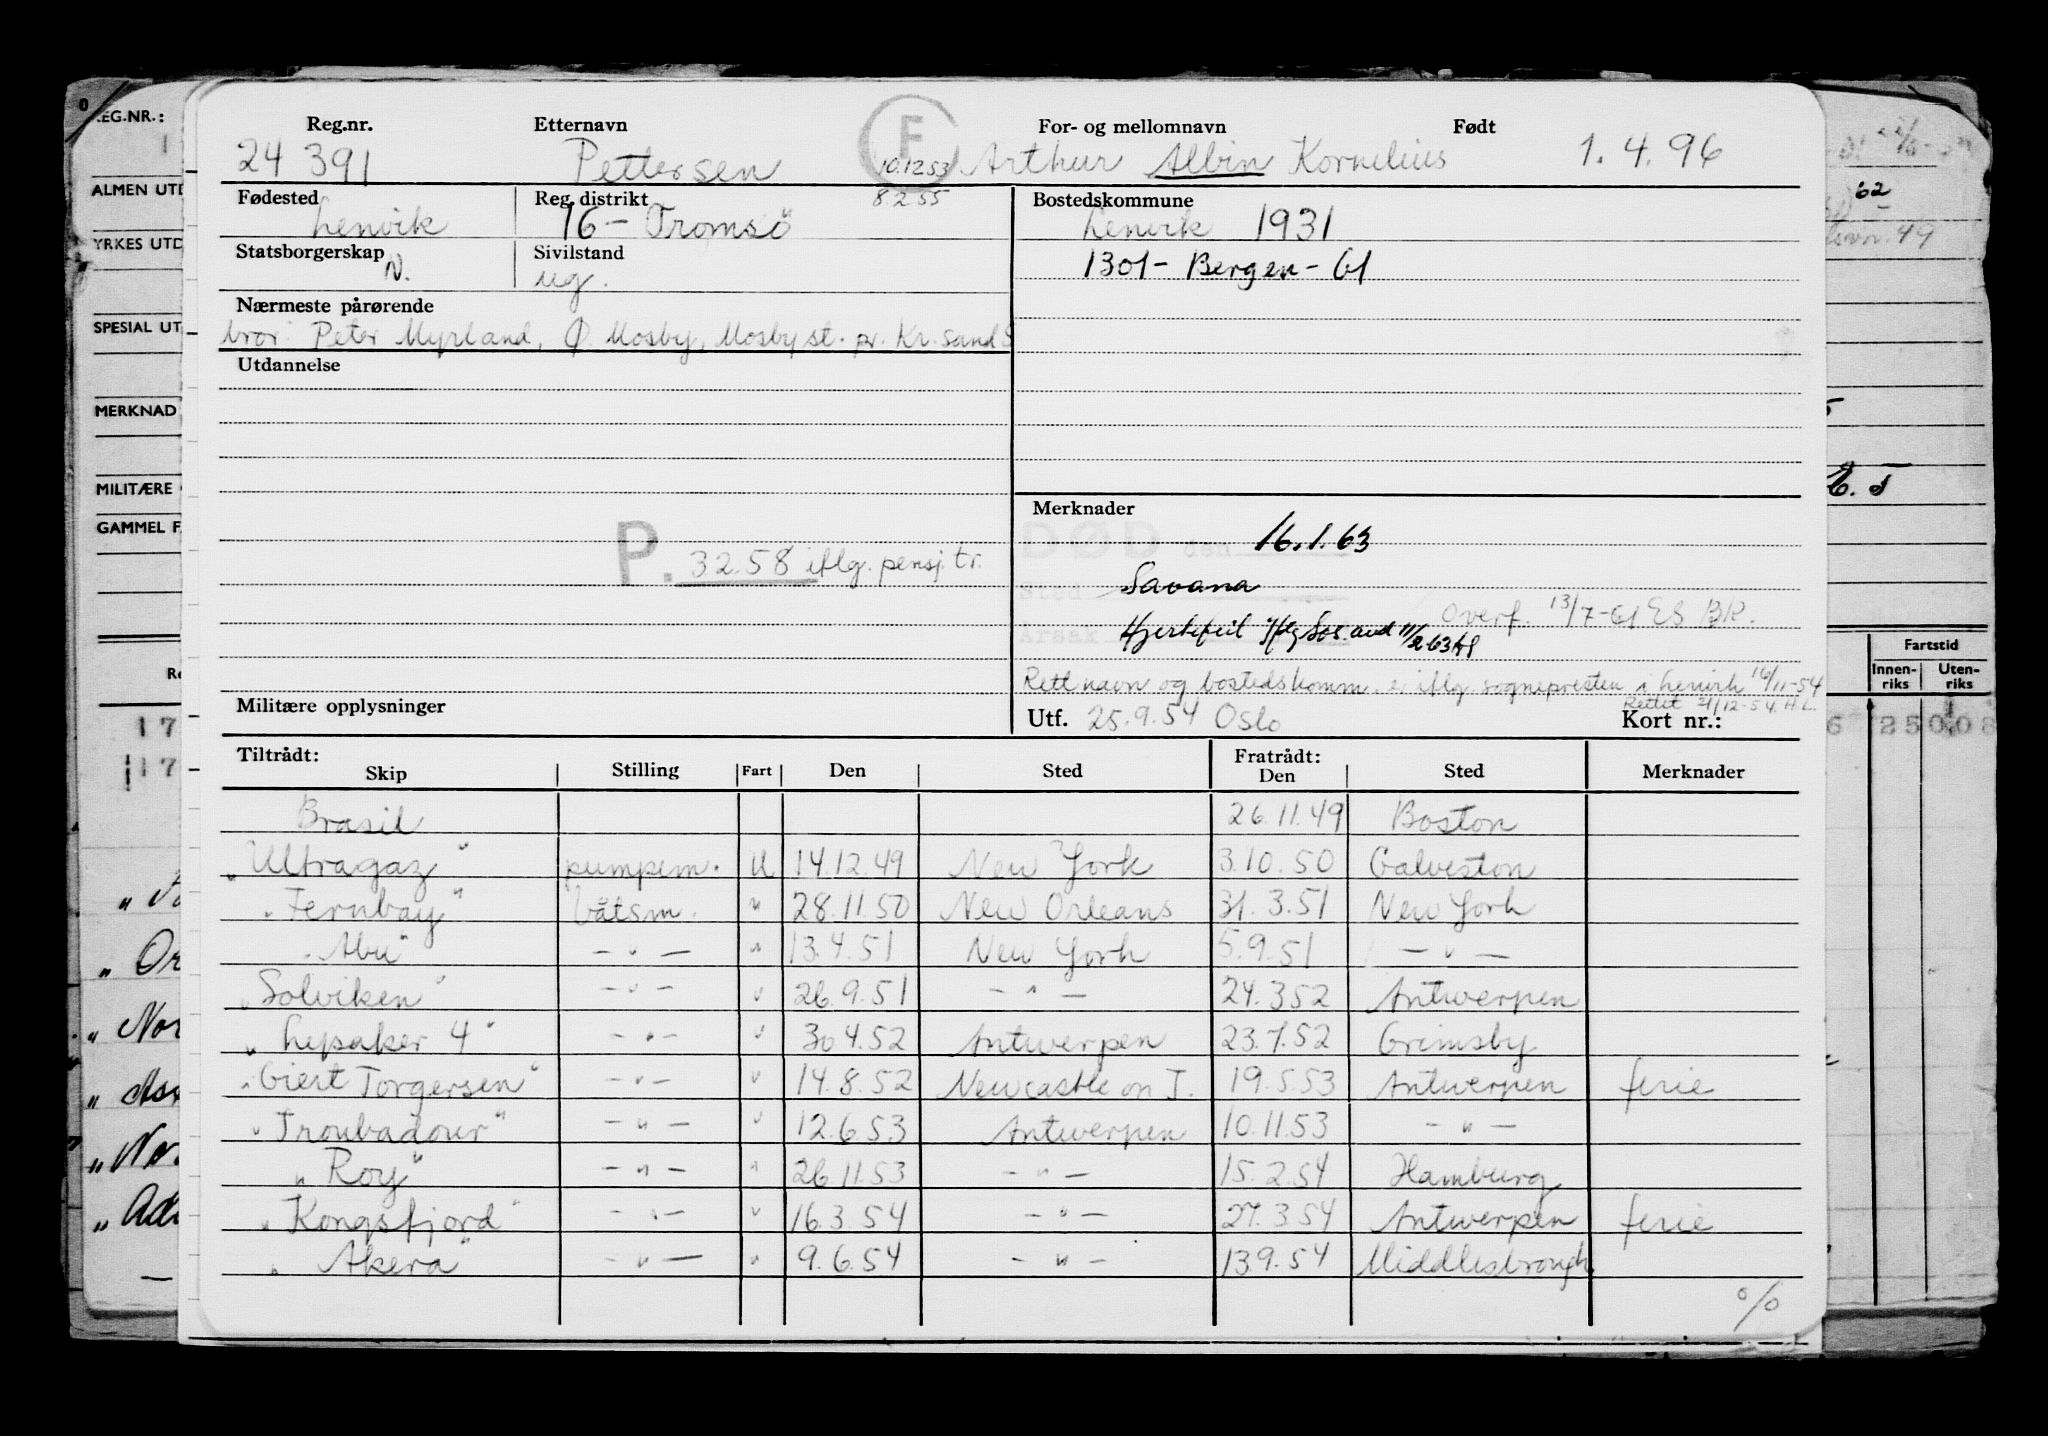 Reg.nr. Etternavn F For- og mellomnavn Født
24 391 Pettersen 10.12.53 Arthur Albin Kornelius 1. 4. 96
8.2.55
Fødested Reg. distrikt Bostedskommune
Lenvik 16 - Tromsö Lenvik 1931
Statsborgerskap Sivilstand
N. ug. 1301 - Bergen - 61
Nærmeste pårørende
bror: Peter Myrland, Mosby, Mosby st. pr. Kr.sand S
Utdannelse
Merknader
DØD den 16.1.63
P. 32.58 iflg. pensj. tr.
Sted Savana
Overf. 13/7-61 ES BR.
Årsak Hjertefeil iflg Sos. avd 11/2 63
Rett navn og bostedskomm. er iflg. sognepresten i Lenvik 16/11-54
Rettet 21/12-54. A.L.
Militære opplysninger Utf. 25.9.54 Oslo Kort nr.:
Tiltrådt: Fratrådt:
Skip Stilling Fart Den Sted Den Sted Merknader
Brasil 26.11.49 Boston
"Ultragaz" pumpem. U 14.12.49 New York 3.10.50 Galveston
"Fernbay" båtsm. " 28.11.50 New Orleans 31.3.51 New York
"Abu" - " - " 13.4.51 New York 5.9.51 - " -
"Solviken" - " - " 26.9.51 - " - 24.3.52 Antwerpen
"Lepsøker 4" - " - " 30.4.52 Antwerpen 23.7.52 Grimsby
"Giert Torgersen" - " - " 14.8.52 Newcastle on T. 19.5.53 Antwerpen ferie
"Troubadour" - " - " 12.6.53 Antwerpen 10.11.53 - " -
"Roy" - " - " 26.11.53 - " - 15.2.54 Hamburg
"Kongsfjord" - " - " 16.3.54 - " - 27.3.54 Antwerpen ferie
"Akera" - " - " 9.6.54 - " - 13.9.54 Middlesbrough.
o/o
REG.NR.:
ALMEN UTD
YRKES UTD
SPESIAL UT
MERKNAD
MILITÆRE
GAMMEL F
17
17
"Nor
"Ask
62
49
Fartstid
Innen-
riks
Uten-
riks